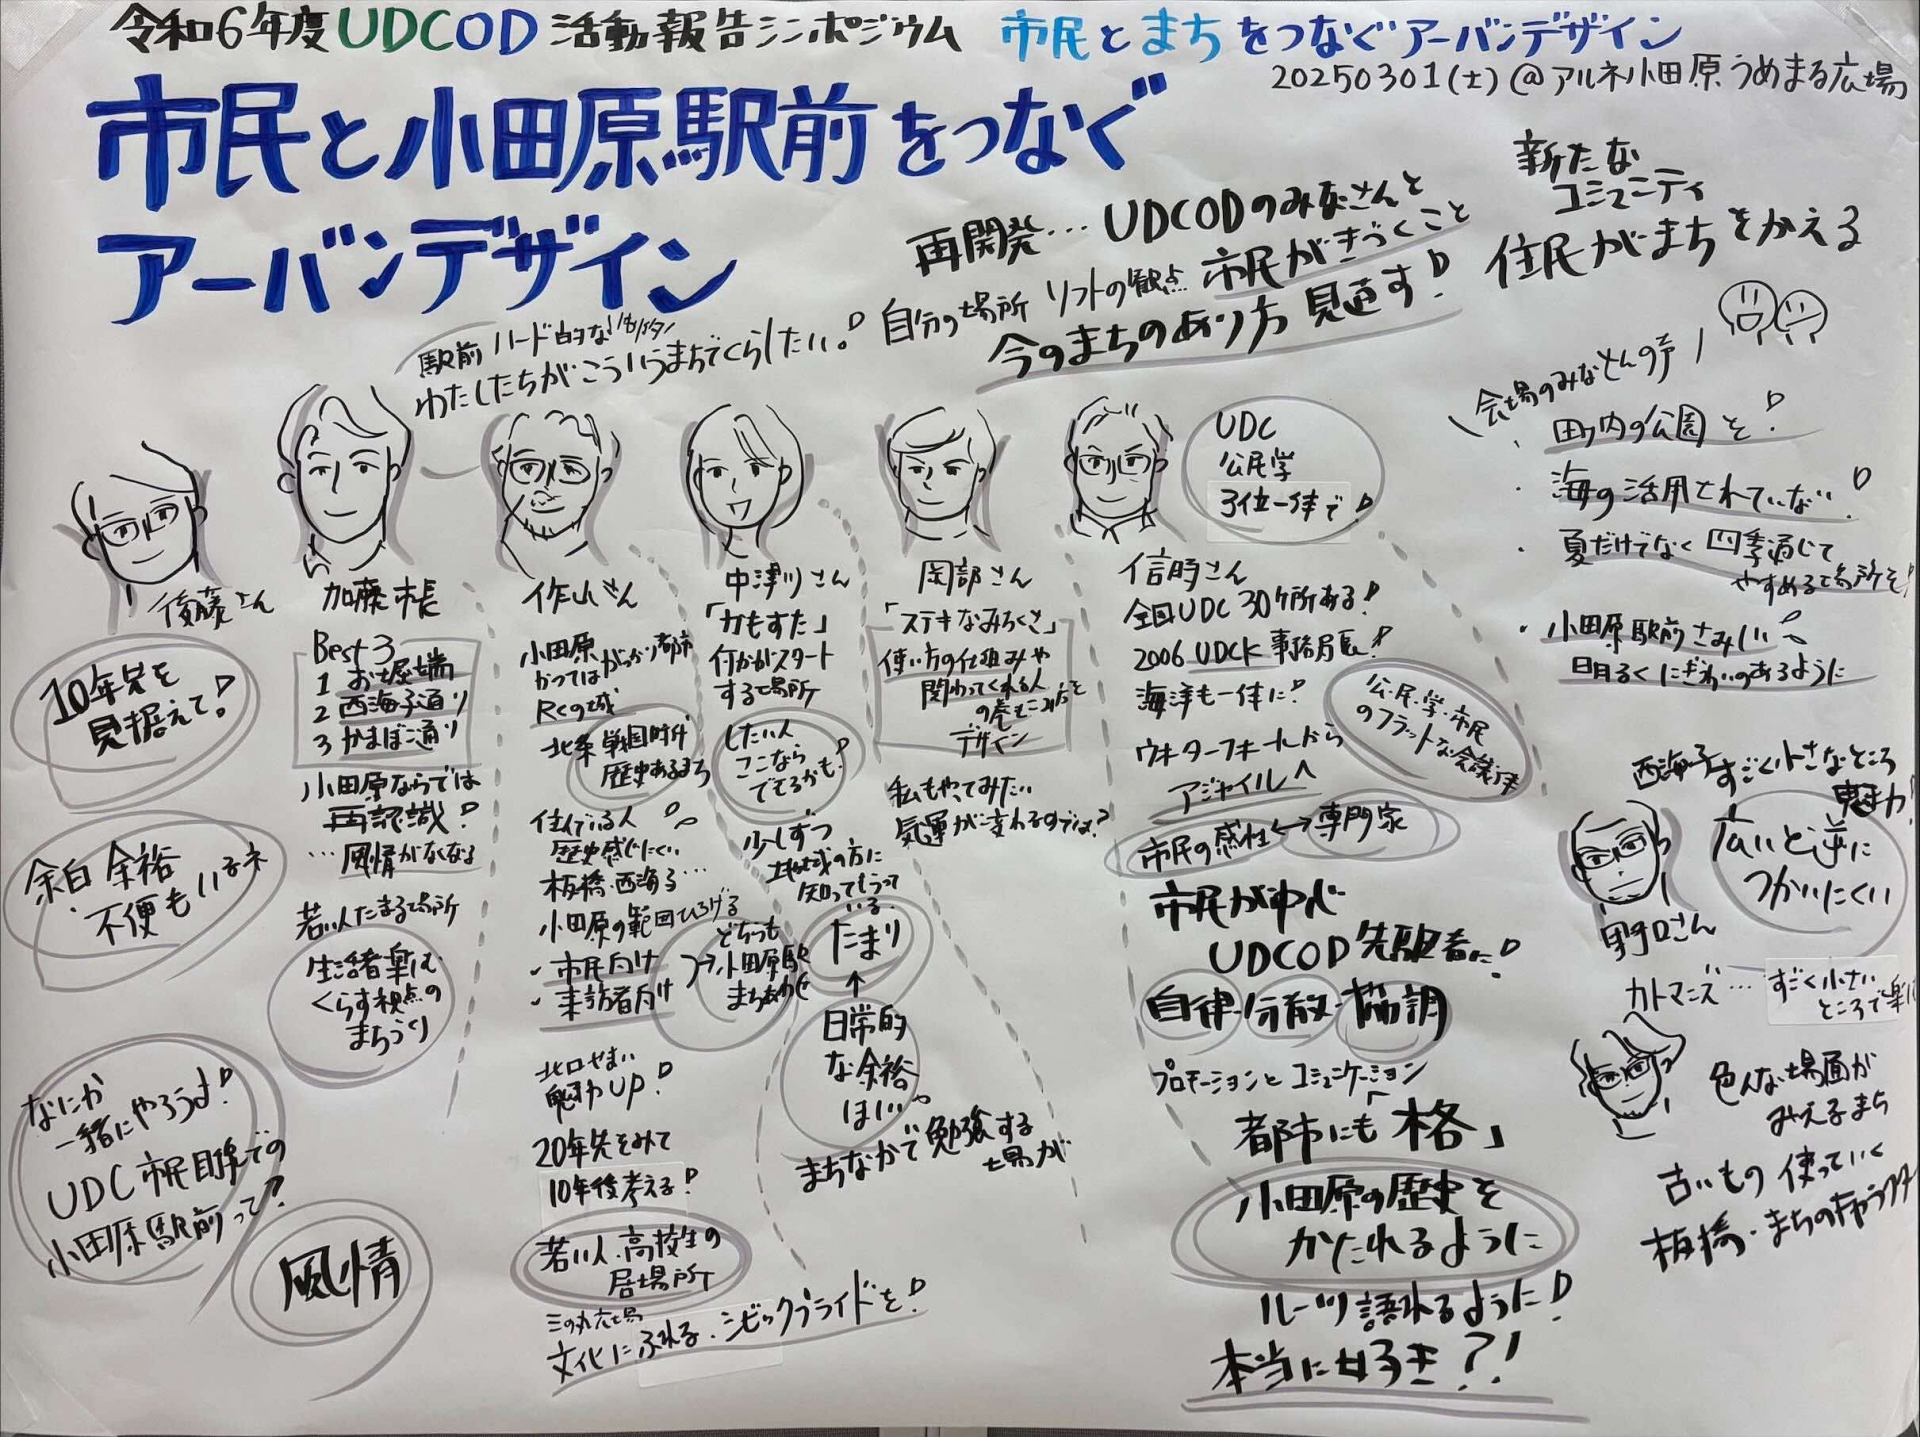 令和6年度UDCOD活動報告シンポジウム
市民とまちをつなぐアーバンデザイン
20250301(土)@アルネ小田原うめまる広場
市民と小田原駅前をつなぐ
アーバンデザイン
再開発…UDCODのみなさんと
自分の場所 ソフトの観点 市民がきづくこと
今のまちのあり方 見直す!
新たな
コミュニティ
住民がまちをかえる
駅前 ハード的な
わたしたちがこういうまちでくらしたい。
後藤さん
10年先を
見据えて!
余白 余裕
不便もいるネ
なにか
一緒にやろうよ!
UDC市民目線での
小田原駅前って?
風情
加藤市長
Best 3
1 お堀端
2 西海子通り
3 かまぼこ通り
小田原ならでは
再認識!
…風情がなくなる
若い人たまる場所
生活者楽しむ
くらす視点の
まちづくり
作山さん
小田原がっかり都市
かつては
RCの城
北条 戦国時代
歴史あるまち
住んでいる人
歴史感じにくい
板橋・西海子…
小田原の範囲ひろげる
・市民向け
・来訪者向け
どちらも
小田原駅
まちあわせ
北口せまい
魅力UP!
20年先をみて
10年後考える!
若い人・高校生の
居場所
三の丸広場
文化にふれる・シビックプライドを!
中津川さん
「かもすた」
何かがスタート
する場所
したい人
ここなら
でてるかも!
少しずつ
地域の方に
知ってもらって
いる
たまり
↑
日常的
な余裕
ほしい
まちなかで勉強する
場が
岡部さん
「ステキなみちくさ」
使い方の仕組みや
関わってくれる人
デザイン
私もやってみたい
気運が変わるのでは?
UDC
公民学
3位一体で!
信時さん
全国UDC 30ケ所ある!
2006 UDCK 事務局長!
海洋も一体に!
ウォーターフォールから
アジャイルへ
公・民・学・市民
のフラットな会議体
市民の感性↔専門家
市民が中心
UDCOD先駆者に!
自律・分散・協調
プロモーションとコミュニケーション
都市にも「格」
小田原の歴史を
かたれるように
ルーツ語れるように!
本当に好き?!
\会場のみなさんの声/
・町内の公園を!
・海の活用されていない!
・夏だけでなく四季通じて
やすめる場所を!
・小田原駅前さみしい
明るくにぎわいのあるように
西海子すごく小さなところ
魅力!
広いと逆に
つかいにくい
野口さん
カトマンズ…すごく小さい
ところで楽し
色んな場面が
みえるまち
古いもの使っていく